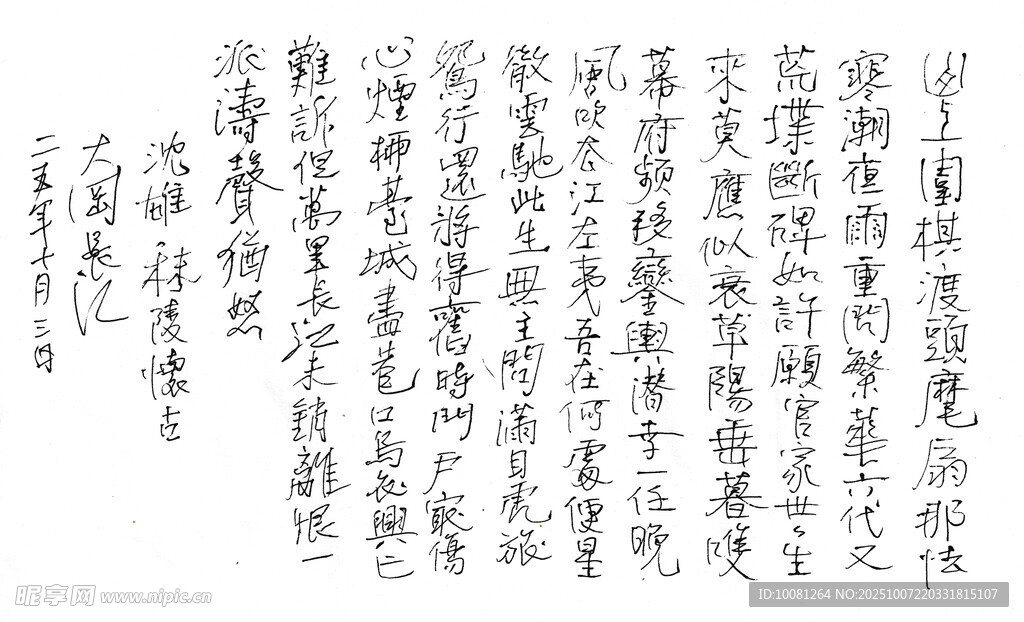 上圍棋渡頭麾扇那怯
寒潮夜雨重問繁華六代又
荒堞斷碑如許願官家世々生
來莫應似衰草陽垂暮嗟
幕府頻移鑾輿潛幸一任晚
風吹去江左夷吾在何處便星
散雲馳此生無主問滿目虎旅
鴛行還將得舊時門戶寂傷
心煙柳臺城盡巷口烏衣興亡
難訴但萬里長江未銷離恨一
派濤聲猶怒
沈雄 秣陵懷古
大岡長江
二五年十月三日
昵享网 www.nipic.cn
ID:10081264 NO:20251007220331815107